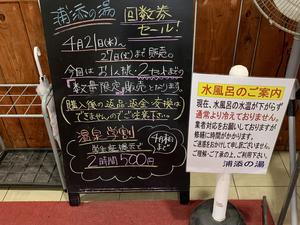 浦添の湯 回数券
セール!
4月21日(水)〜
27日(火)まで販売。
今回はお1人様・2セットまでの
数量限定販売となります。
購入後の返品、返金、交換は
できませんのでご注意下さい。
温泉学割
学生証提示で
2時間500円
水風呂のご案内
現在、水風呂の水温が下がらず
通常より冷えておりません。
業者対応をお願いしておりますが
修繕に時間がかかります。
ご迷惑をおかけして申し訳ございません。
ご理解・ご了承の上、ご利用下さい。
浦添の湯